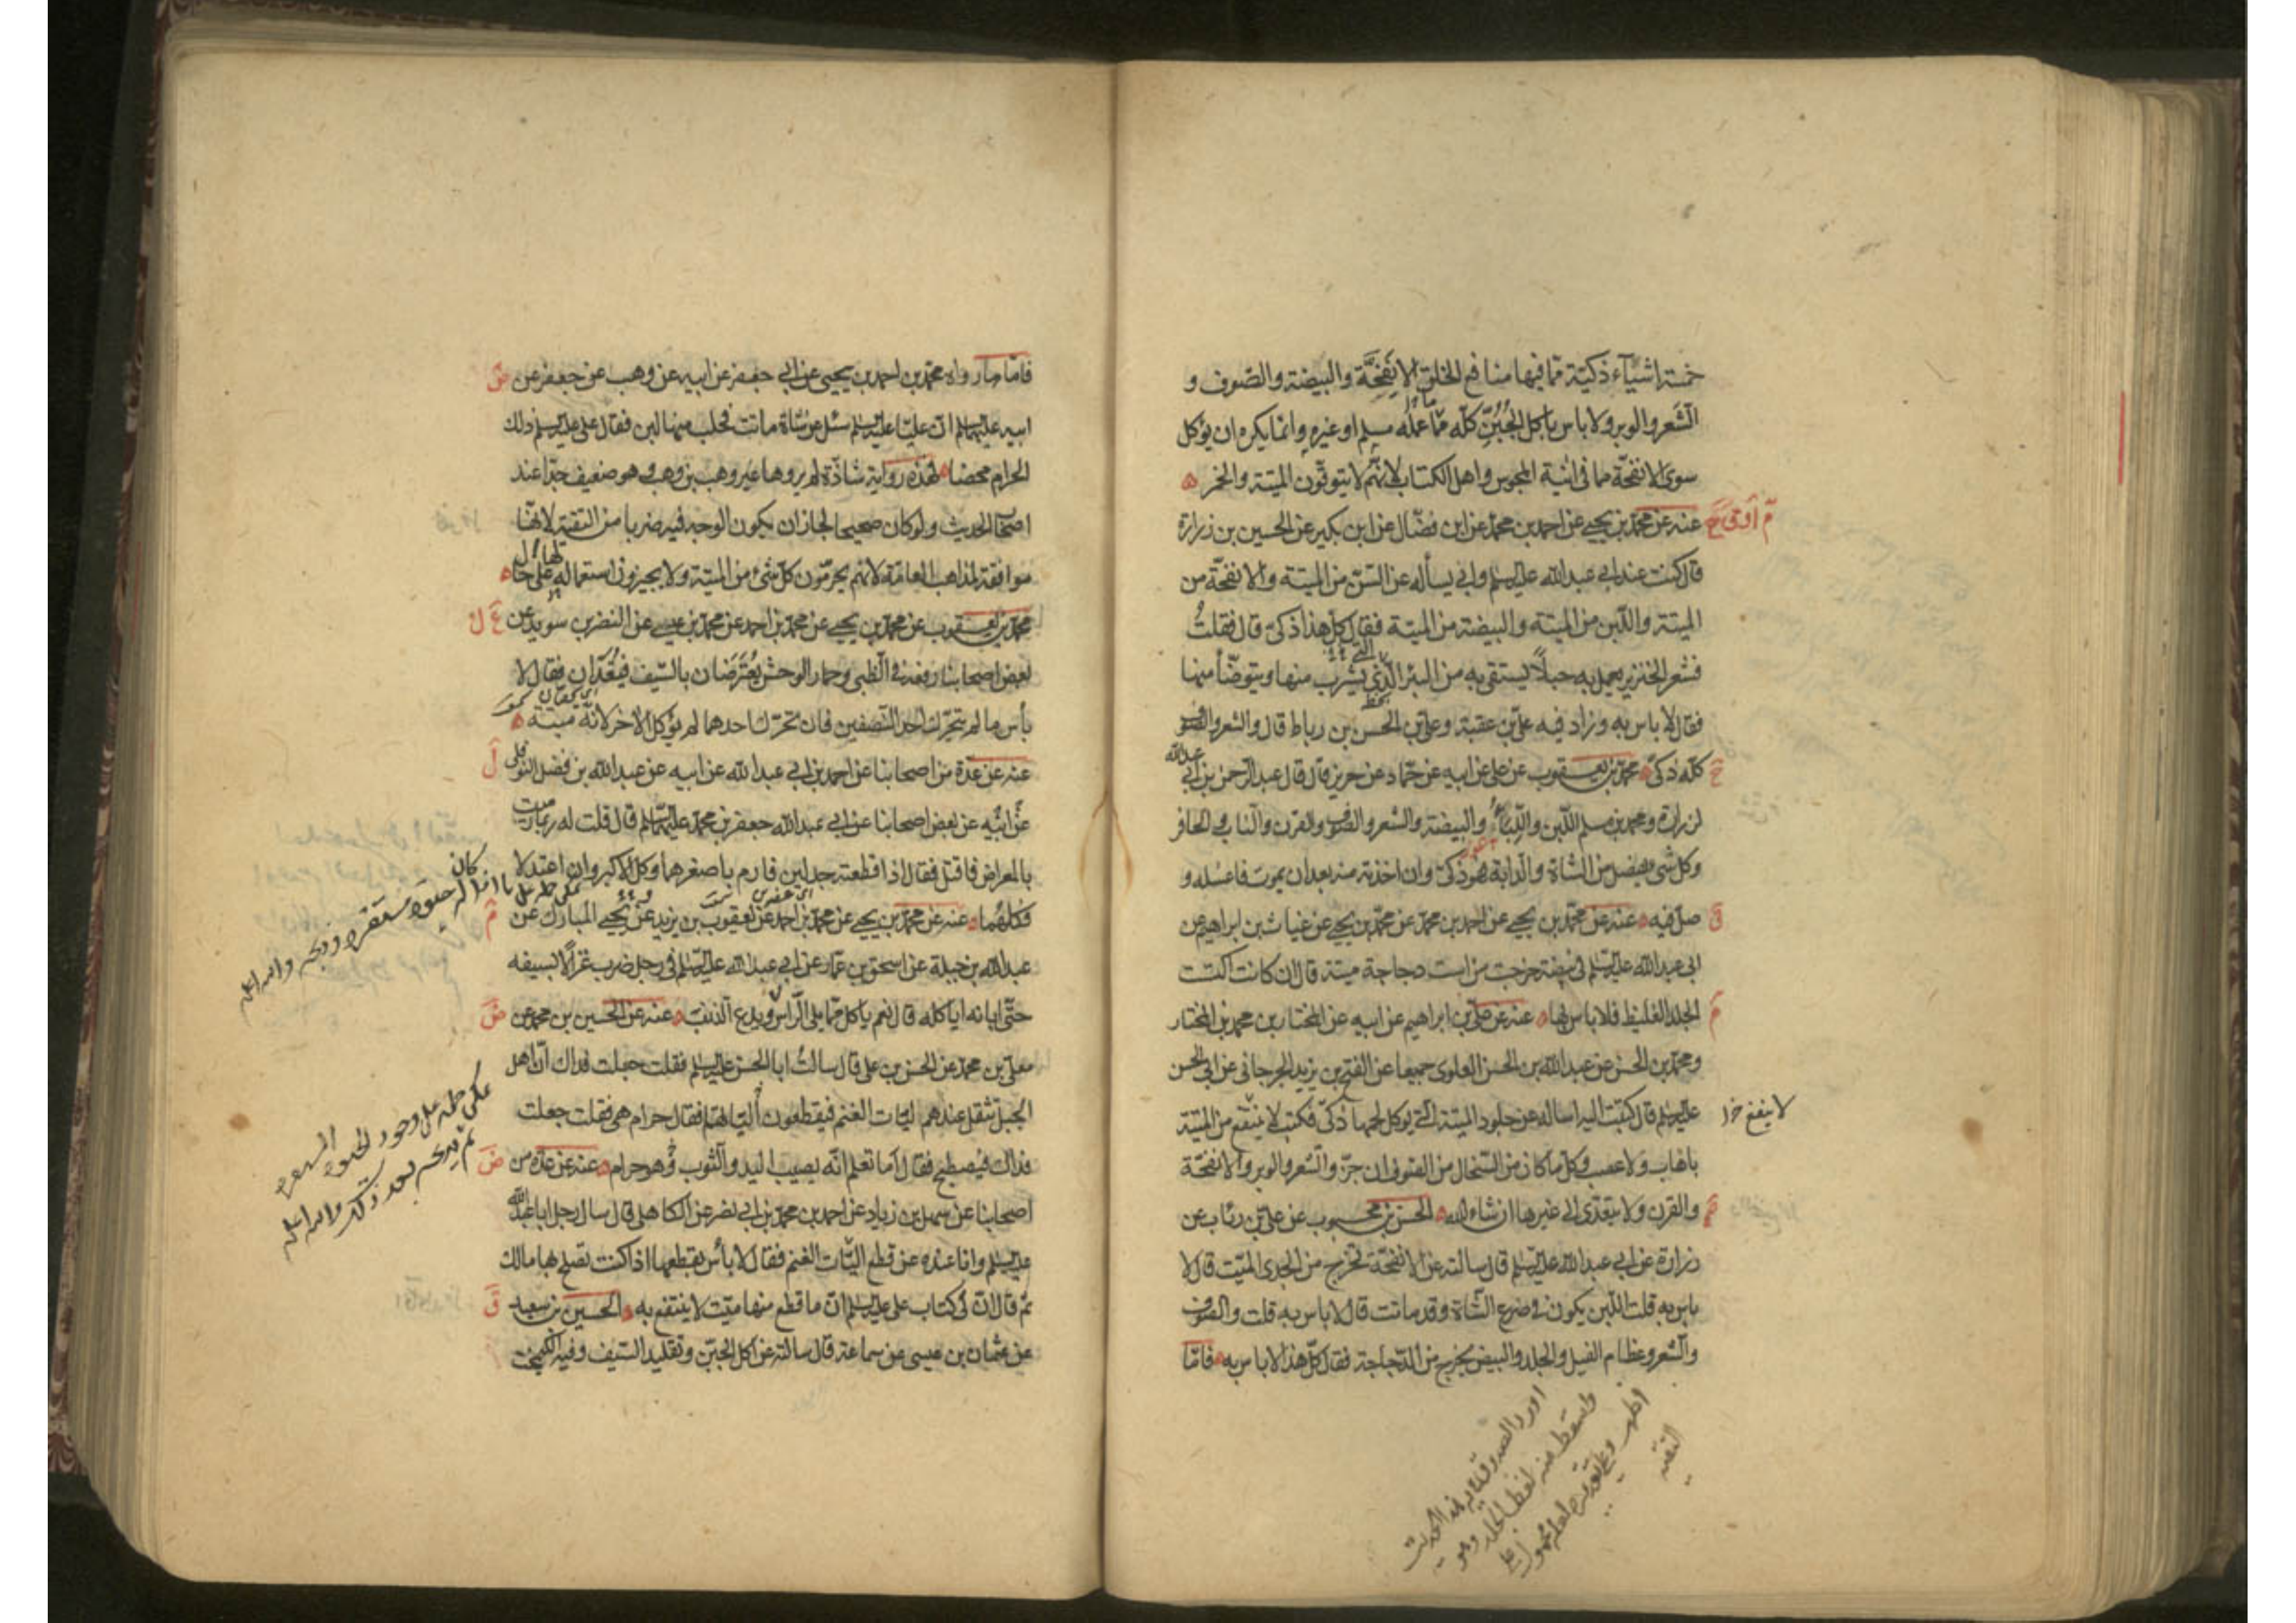 خمسة اشياء ذكية مما فيها منافع الخلق الانفحة والبيضة والصوف و
الشعر والوبر ولا باس باكل الجبن كله مما عمله مسلم او غيره وانما يكره ان يؤكل
سوى الانفحة مما فى انية المجوس واهل الكتاب لانهم لا يتوقون الميتة والخمر
عنه عن محمد بن يحيى عن احمد بن محمد عن ابن فضال عن ابن بكير عن الحسين بن زرارة
قال كنت عند ابى عبد الله عليه السلم وابى يسأله عن السن من الميتة والانفحة من
الميتة واللبن من الميتة والبيضة من الميتة فقال كل هذا ذكى قال فقلت
فشعر الخنزير يعمل به حبلا يستقى به من البئر التى يشرب منها ويتوضأ منها
فقال لا باس به وزاد فيه على بن عقبة وعلى بن الحسن بن رباط قال والشعر والصوف
كله ذكى محمد بن يعقوب عن على عن ابيه عن حماد عن حريز قال قال عبد الرحمن بن ابى عبد الله
لزرارة ومحمد بن مسلم اللبن واللبأ والبيضة والشعر والصوف والقرن والناب والحافر
وكل شى يفصل من الشاة والدابة فهو ذكى وان اخذته منه بعد ان يموت فاغسله و
صل فيه عنه عن محمد بن يحيى عن احمد بن محمد عن محمد بن يحيى عن غياث بن ابراهيم عن
ابى عبد الله عليه السلم فى بيضة خرجت من است دجاجة ميتة قال ان كانت اكتست
الجلد الغليظ فلا باس بها عنه عن على بن ابراهيم عن ابيه عن المختار بن محمد بن المختار
ومحمد بن الحسن عن عبد الله بن الحسن العلوى جميعا عن الفتح بن يزيد الجرجانى عن ابى الحسن
عليه السلم قال كتبت اليه اساله عن جلود الميتة التى يوكل لحمها ذكى فكتب لا ينتفع من الميتة
لا ينتفع خ ر
باهاب ولا عصب وكل ما كان من السخال من الصوف ان جز والشعر والوبر والانفحة
والقرن ولا يتعدى الى غيرها ان شاء الله الحسن بن محبوب عن على بن رئاب عن
زرارة عن ابى عبد الله عليه السلم قال سالته عن الانفحة تخرج من الجدى الميت قال لا
باس به قلت اللبن يكون فى ضرع الشاة وقد ماتت قال لا باس به قلت والصوف
والشعر وعظام الفيل والجلد والبيض يخرج من الدجاجة فقال كل هذا لا باس به فاما
اورد الصدوق هذا الحديث
واسقط منه لفظ الجلد وهو
اظهر وعلى تقديره لعله محمول على
التقية
فاما ما رواه محمد بن احمد بن يحيى عن ابى جعفر عن ابيه عن وهب عن جعفر عن
ابيه عليهما السلم ان عليا عليه السلم سئل عن شاة ماتت فحلب منها لبن فقال على عليه السلم ذلك
الحرام محضا فهذه رواية شاذة لم يروها غير وهب بن وهب وهو ضعيف جدا عند
اصحاب الحديث ولو كان صحيحا لجاز ان يكون الوجه فيه ضربا من التقية لانها
موافقة لمذاهب العامة لانهم يحرمون كل شئ من الميتة ولا يجيزون استعماله على حال
محمد بن يعقوب عن محمد بن يحيى عن محمد بن احمد عن محمد بن عيسى عن النضر بن سويد عن
بعض اصحابنا رفعه فى الظبى وحمار الوحش يعترضان بالسيف فيقدان فقال لا
بأس ما لم يتحرك احد النصفين فان تحرك احدهما لم يؤكل الاخر لانه ميتة
عنه عن عدة من اصحابنا عن احمد بن ابى عبد الله عن ابيه عن عبد الله بن فضل النوفلى
عن ابيه عن بعض اصحابنا عن ابى عبد الله جعفر بن محمد عليهما السلم قال قلت له ربما رميت
بالمعراض فاقتل فقال اذا قطعته جدلين فارم باصغرهما وكل الاكبر وان اعتدلا
فكلهما عنه عن محمد بن يحيى عن محمد بن احمد عن يعقوب بن يزيد عن يحيى المبارك عن
عبد الله بن جبلة عن اسحق بن عمار عن ابى عبد الله عليه السلم فى رجل ضرب غزالا بسيفه
حتى ابانه اياكله قال نعم ياكل مما يلى الراس ويدع الذنب عنه عن الحسين بن محمد عن
معلى بن محمد عن الحسن بن على قال سالت ابا الحسن عليه السلم فقلت جعلت فداك ان اهل
الجبل تثقل عندهم اليات الغنم فيقطعون الياتها فقال حرام هى فقلت جعلت
فداك فيصطبح فقال اما تعلم انه يصيب اليد والثوب وهو حرام عنه عن عدة من
اصحابنا عن سهل بن زياد عن احمد بن محمد بن ابى نصر عن الكاهلى قال سال رجل ابا عبد الله
عليه السلم وانا عنده عن قطع اليات الغنم فقال لا بأس بقطعها اذا كنت تصلح بها مالك
ثم قال ان فى كتاب على عليه السلم ان ما قطع منها ميت لا ينتفع به الحسين بن سعيد
عن عثمان بن عيسى عن سماعة قال سالته عن اكل الجبن وتقليد السيف وفيه الكيمخت